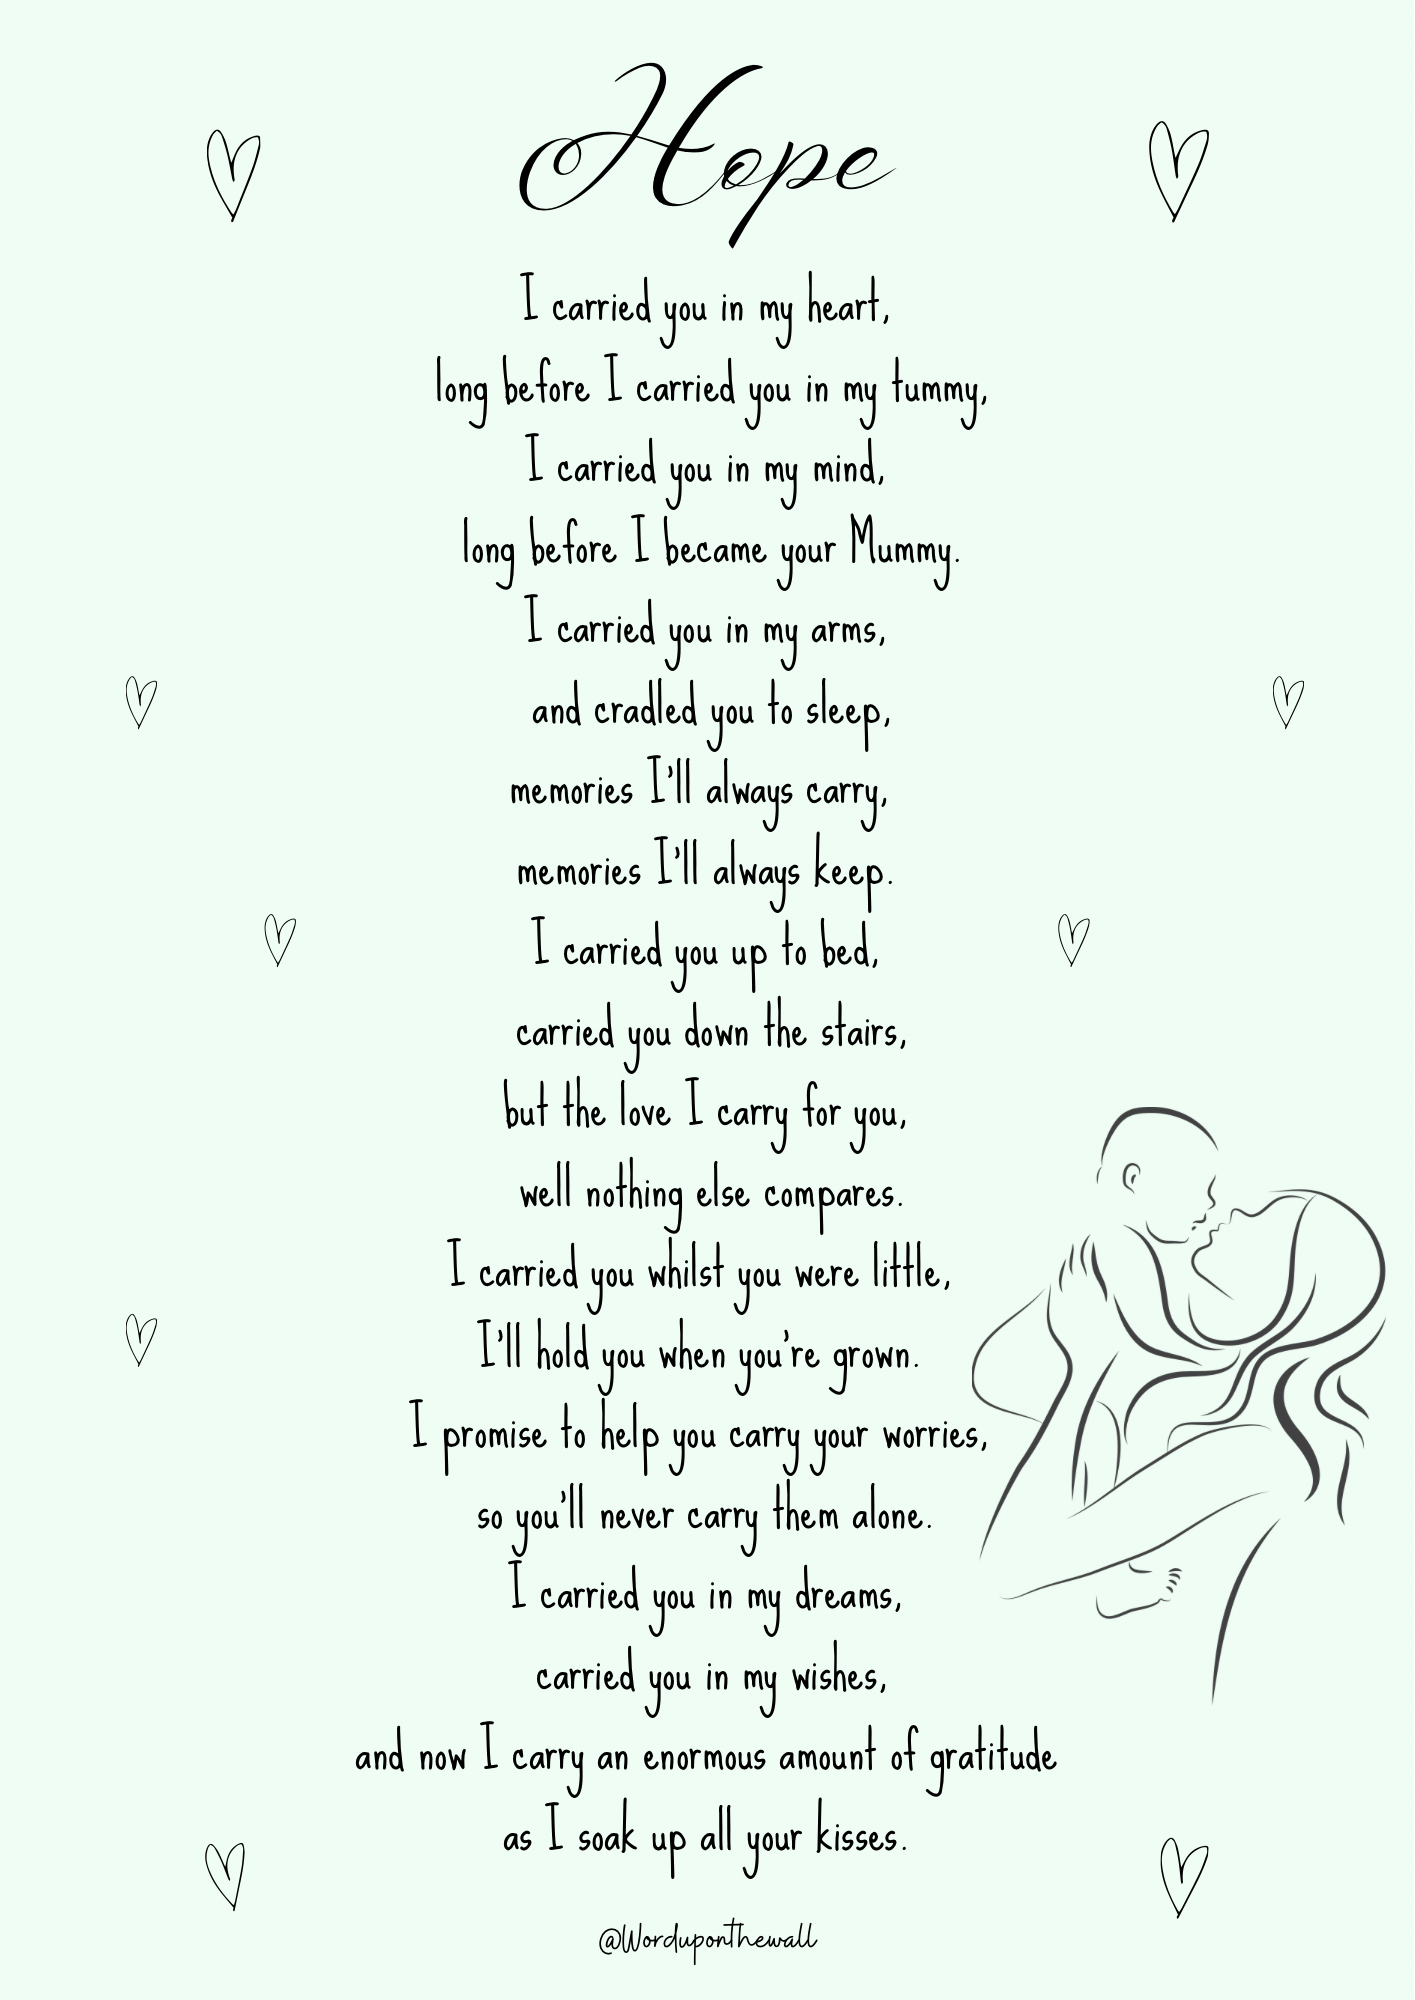 Hope
I carried you in my heart,
long before I carried you in my tummy,
I carried you in my mind,
long before I became your Mummy.
I carried you in my arms,
and cradled you to sleep,
memories I'll always carry,
memories I'll always keep.
I carried you up to bed,
carried you down the stairs,
but the love I carry for you,
well nothing else compares.
I carried you whilst you were little,
I'll hold you when you're grown.
I promise to help you carry your worries,
so you'll never carry them alone.
I carried you in my dreams,
carried you in my wishes,
and now I carry an enormous amount of gratitude
as I soak up all your kisses.
@Worduponthewall